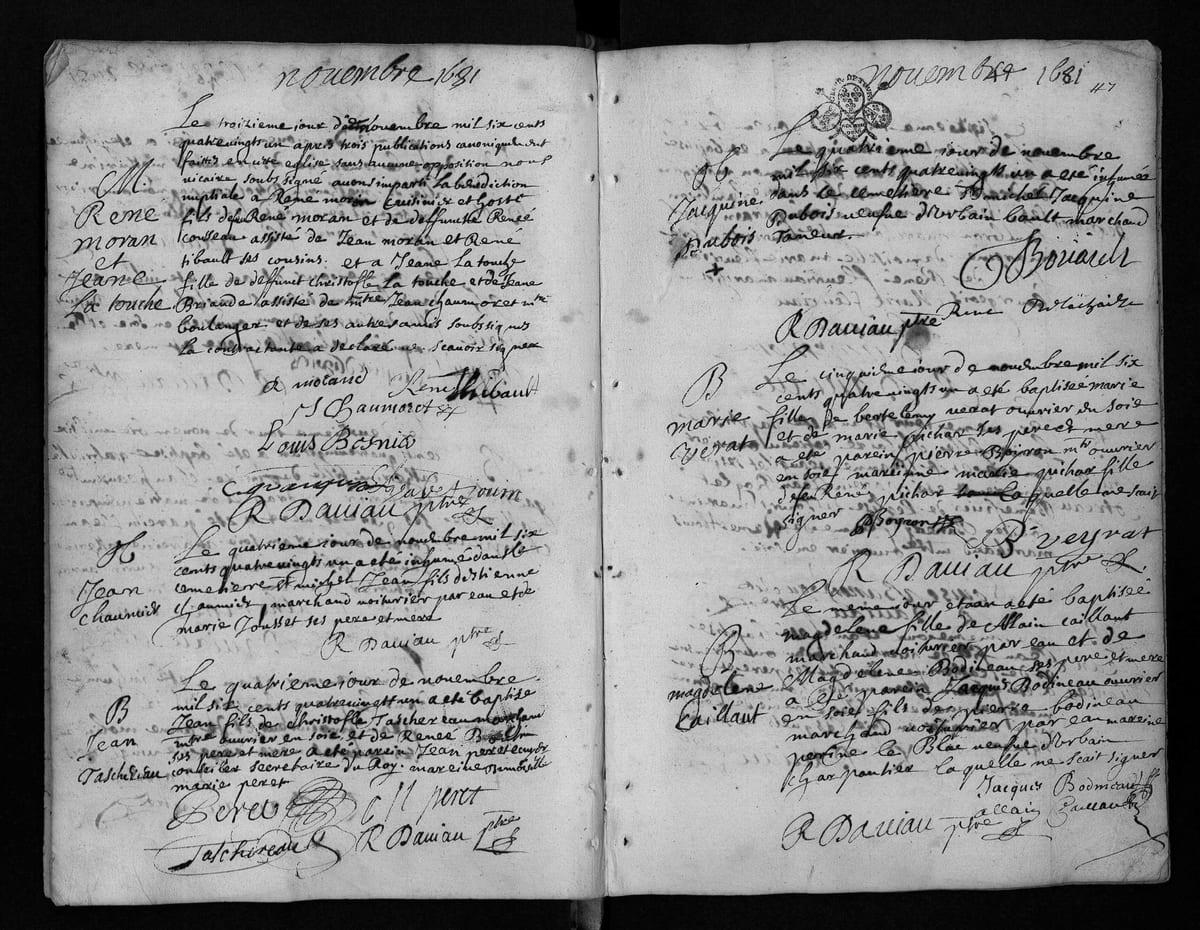 novembre 1681
Le troizieme jour de novembre mil six cents
quatrevingts un apres trois publications canoniquement
faittes en notre eglise sans aucune opposition nous
vicaire soubssigné avons imparti la benediction
M.
René
moran
et
Jeane
La touche
nuptiale a René moran Cuisinier et hoste
fils de feu René moran et de deffuncte Reneé
Cousseau assisté de Jean moran et René
tibault ses cousins. et a Jeane La touche
fille de deffunct christofle La touche et de Jeane
Briande assistée de Jean chaumoret mtre
boulanger et de ses autres amis soubssignés
La contractante a declaré ne sçavoir signer
R morand René Thibault
J Chaumoret
Louis Bosnia
R Dauiau ptre
H
Jean
chaumier
Le quatrieme jour de novembre mil six
cents quatrevingts un a eté inhumé dans le
cemetierre St michel Jean fils d'estienne
chaumier marchand voiturier par eau et de
marie Jousset ses pere et mere
R Dauiau ptre
B
Jean
Taschereau
Le quatrieme jour de novembre
mil six cents quatrevingts un a eté baptisé
Jean fils de christofle Taschereau marchand
mtre ouvrier en soie et de Reneé
ses pere et mere a eté parein Jean peret
conseiler secretaire du Roy. mareine
marie peret
Peret M peret
Taschereau R Dauiau ptre
novembre 1681
47
H
Jacquine
Dubois
+
Le quatrieme jour de novembre
mil six cents quatrevingts un a eté inhumée
dans le cemettiere St miché Jacquine
Dubois veufve d'Urbain bault marchand
Taneur.
R Dauiau ptre René
B
marie
verat
Le cinquieme jour de novembre mil six
cents quatrevingts un a eté baptisée marie
fille de bertelemy verat ouvrier en soie
et de marie pichar ses pere et mere
a eté parein pierre Boyron mtre ouvrier
en soie mareinne marie pichar fille
de feu René pichar laquelle ne sait
signer P Boyron
B veyrat
R Dauiau ptre
B
magdelene
Caillaut
Le meme jour et an a eté baptisée
magdelene fille de Allain caillaut
marchand voiturier par eau et de
Magdeleneé Bodineau ses pere et mere
a eté parein Jacques Bodineau ouvrier
en soie fils de pierre bodineau
marchand voiturier par eau mareine
perine le Blac veufve d'Urbain
charpantier laquelle ne sçait signer
Jacques Bodineau
allain Caillaut
R Dauiau ptre